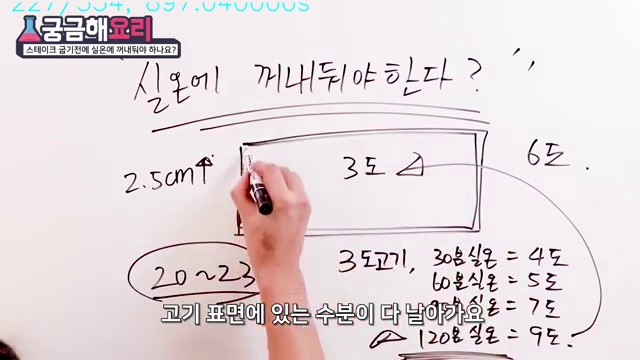 227/334, 897.040000s
궁금해요리
스테이크 굽기전에 실온에 꺼내둬야 하나요?
실온에 꺼내둬야한다?
2.5cm↑
3도
6도.
20~23
3도고기, 30분실온 = 4도
60분실온 = 5도
실온 = 7도
120분실온 = 9도.
고기 표면에 있는 수분이 다 날아가요